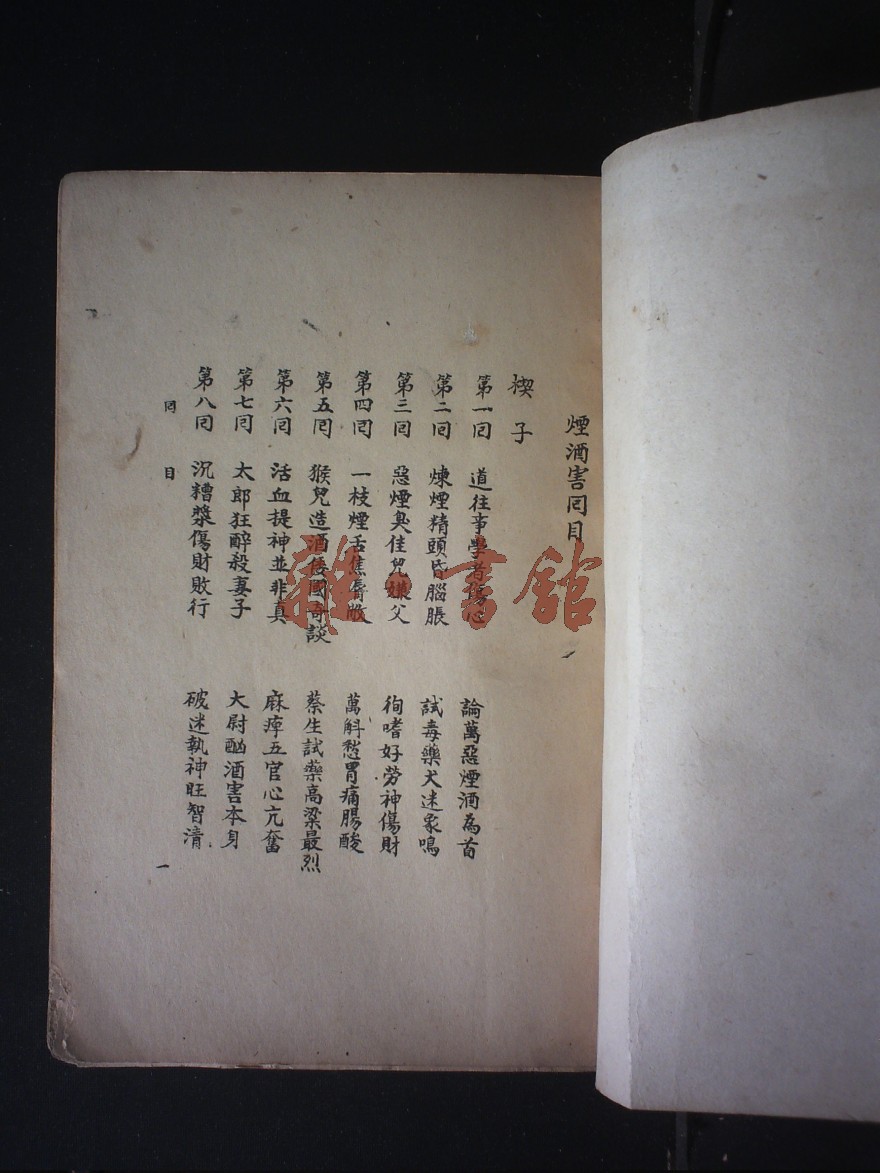 煙酒害囘目
楔子
第一囘 道往事學者傷心 論萬惡煙酒為首
第二囘 煉煙精頭昏腦脹 試毒藥犬迷象鳴
第三囘 惡煙臭佳兒嫌父 徇嗜好勞神傷財
第四囘 一枝煙舌焦脣敝 萬斛愁胃痛腸酸
第五囘 猴兒造酒倭國奇談 蔡生試藥高粱最烈
第六囘 活血提神並非真 麻痺五官心亢奮
第七囘 太郎狂醉殺妻子 大尉酗酒害本身
第八囘 沉糟漿傷財敗行 破迷執神旺智清
囘目 一
雜·書館